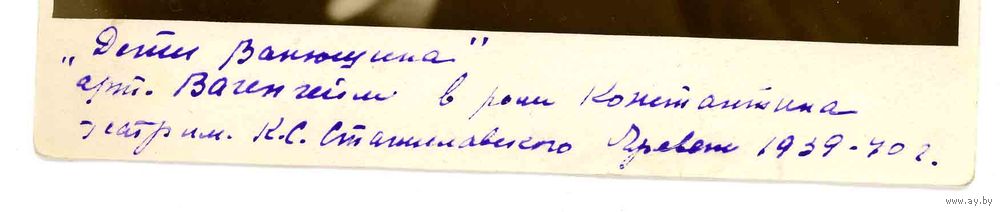 „Дети Ванюшина"
арт. Вагенгейм в роли Константина
театр им. К.С. Станиславского Ереван 1939-40 г.
www.ay.by